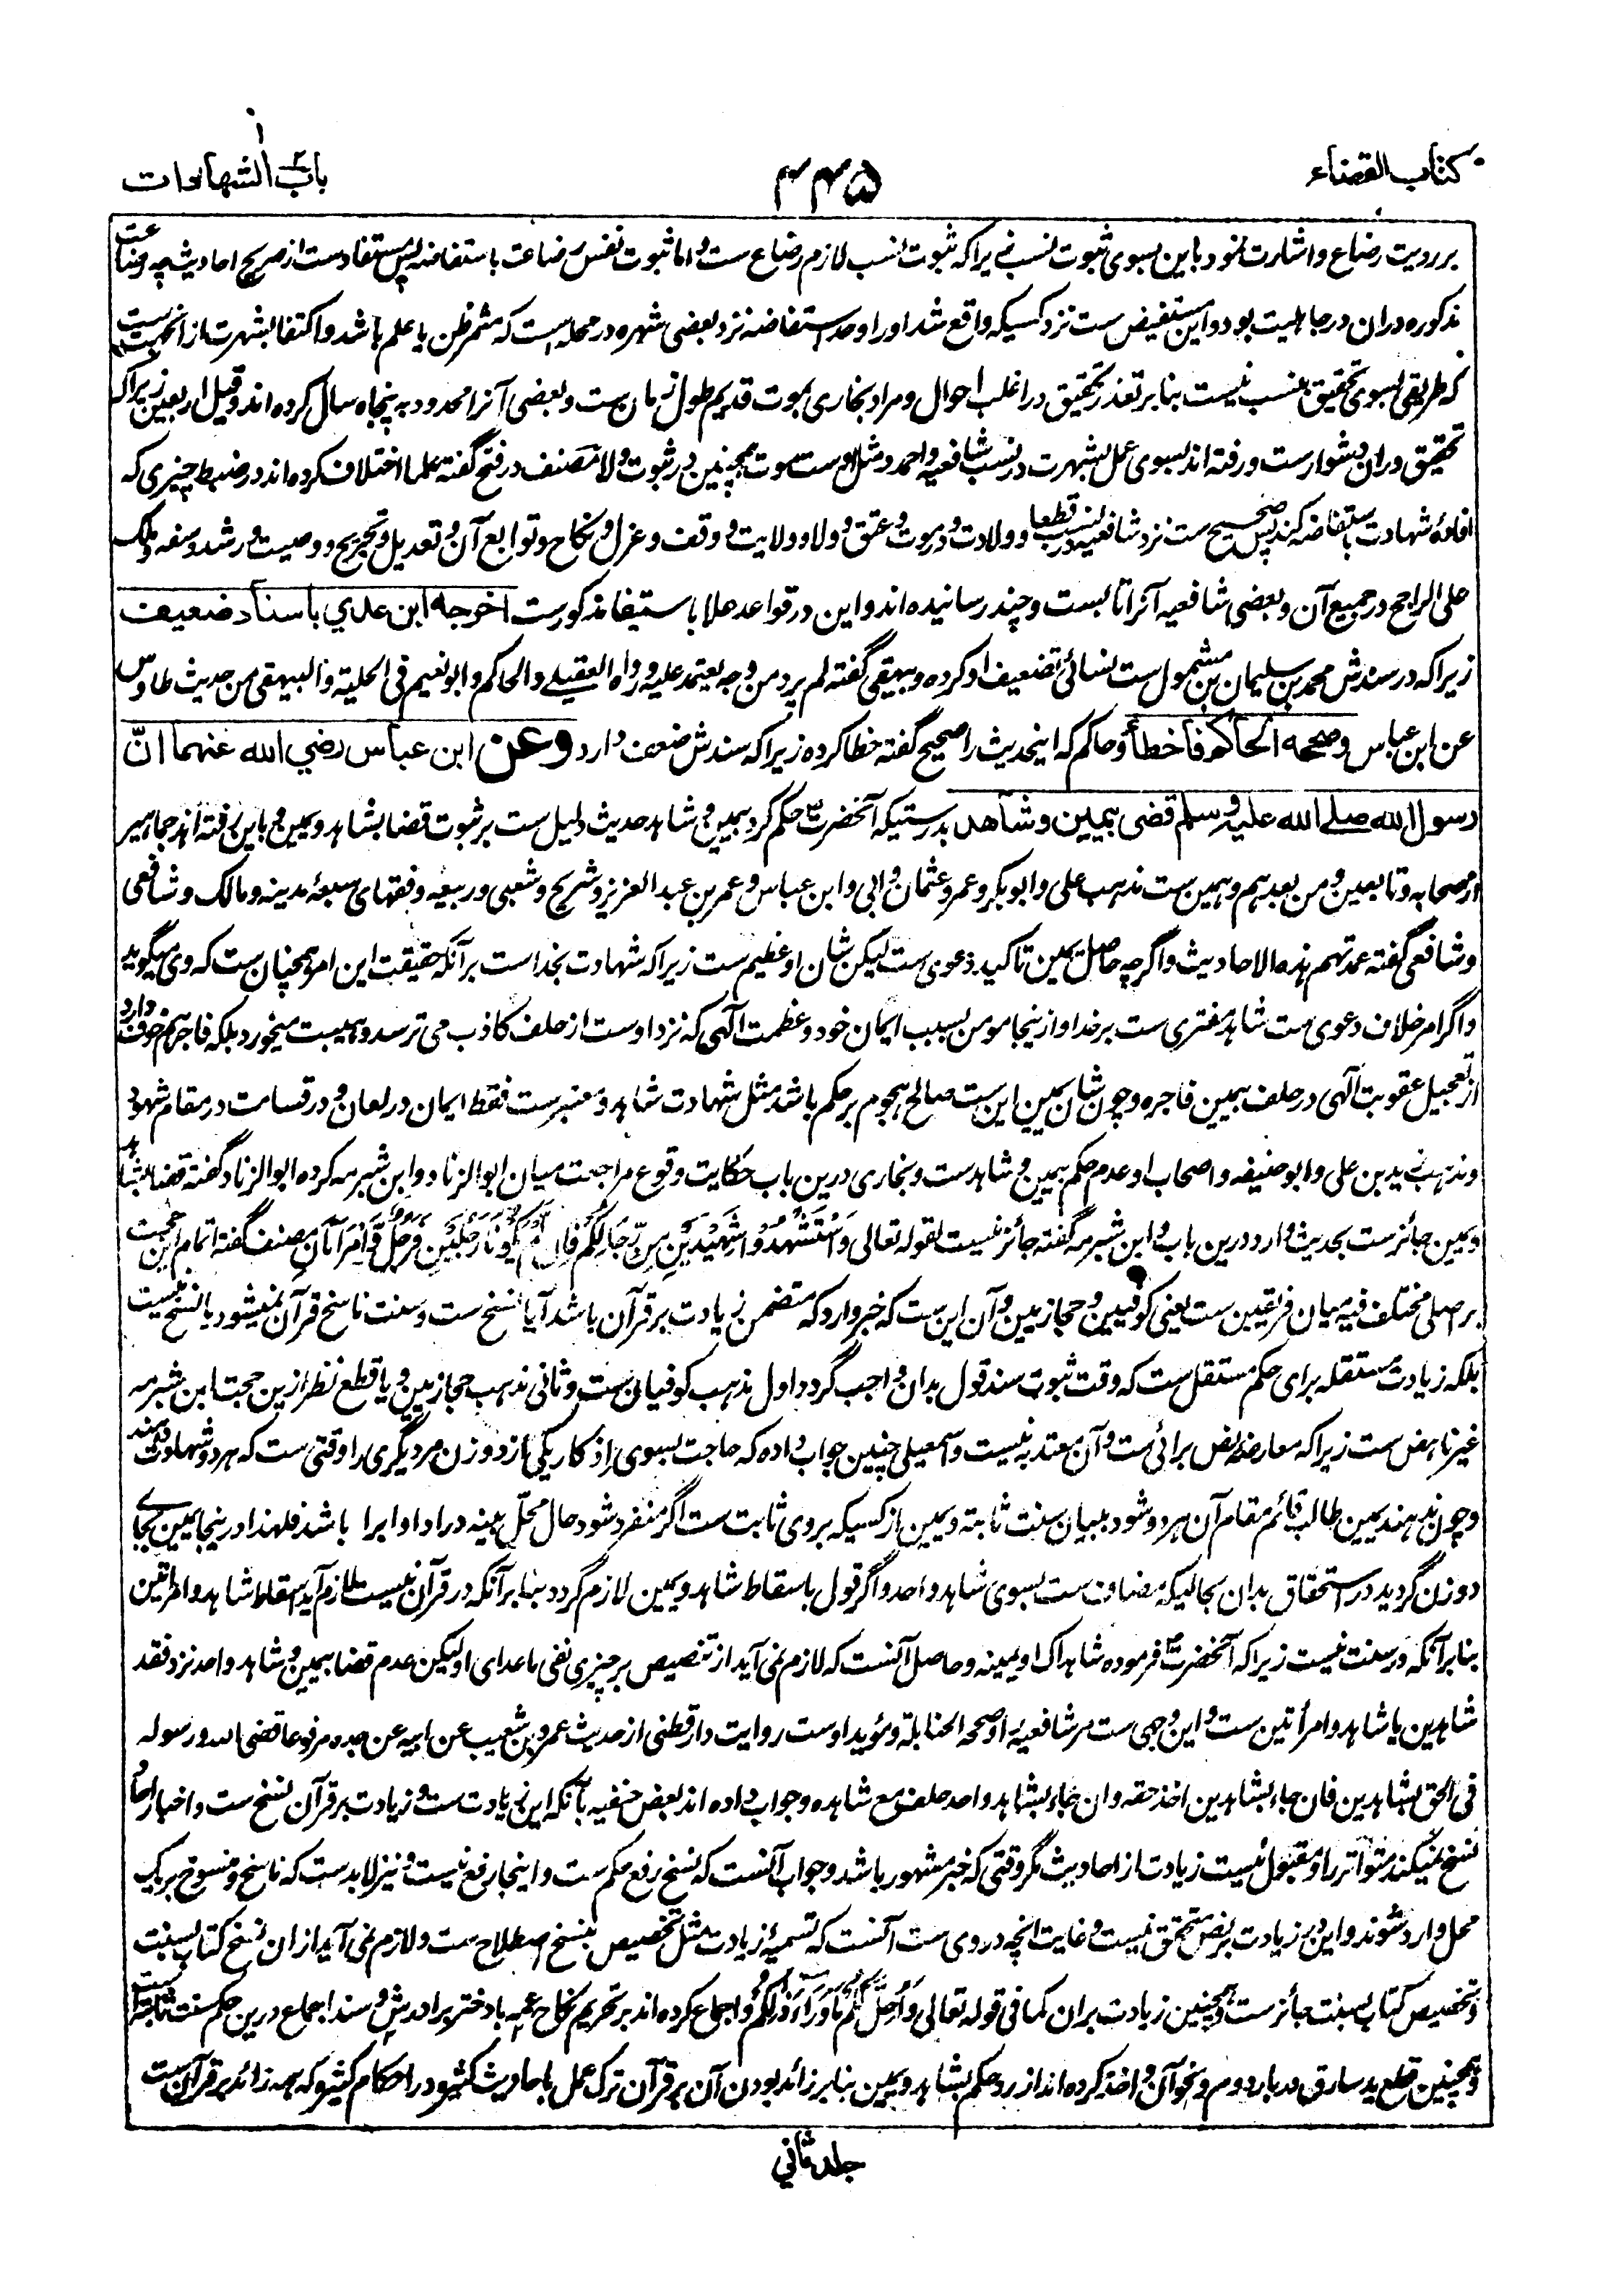 كتاب القضاء
۴۴۵
باب الشهادات
بر رویت رضاع و اشارت نمود باین بسوی ثبوت نسب زیراکه ثبوت نسب لازم رضاع ست و اما ثبوت نفس رضاعت باستفاضه پس مستفادست از صریح احادیث چه رضاعت
مذکوره دران در جاهلیت بود و این مستفیض ست نزد کسیکه واقع شد او را و حد استفاضه نزد بعضی شهره در محله است که مثمر ظن یا علم باشد و اکتفا بشهرت ازانجهت ست
که طریقی بسوی تحقیق نسب نیست بنابر تعذر تحقیق در اغلب احوال و مراد بخاری بموت قدیم طول زمان ست و بعضی آنرا محدود به پنجاه سال کرده اند و قیل اربعین زیراکه
تحقیق دران دشوارست و رفته اند بسوی عمل بشهرت در نسب شافعیه و احمد و مثل اوست موت همچنین در ثبوت ولا مصنف در فتح گفته علما اختلاف کرده اند در ضبط چیزی که
افادهٔ شهادت باستفاضه کند پس صحیح ست نزد شافعیه در نسب قطعا و ولادت و در موت و عتق و ولا و ولایت و وقف و عزل و نکاح و توابع آن و تعدیل و تجریح و وصیت و رشد و سفه و ملک
علی الراجح در جمیع آن و بعضی شافعیه آنرا تا بست و چند رسانیده اند و این در قواعد علا باستیفا مذکورست اخرجه ابن عدي باسناد ضعيف
زیراکه در سندش محمد بن سلیمان بن مشمول ست نسائی تضعیف او کرده و بیهقی گفته لم یرد من وجه یعتمد علیه و رواه العقیلی و الحاکم و ابو نعیم فی الحلیة و البیهقی من حدیث طاوس
عن ابن عباس وصححه الحاكم فأخطأ و حاکم که اینحدیث را صحیح گفته خطا کرده زیراکه سندش ضعف دارد وعن ابن عباس رضي الله عنهما انّ
رسول الله صلے الله عليه وسلم قضى بيمين وشاهد بدرستیکه آنحضرت ﷺ حکم کرد بیمین و شاهد حدیث دلیل ست بر ثبوت قضا بشاهد و یمین و باین رفته اند جماهیر
از صحابه و تابعین و من بعدهم و همین ست مذهب علی و ابوبکر و عمر و عثمان و ابی و ابن عباس و عمر بن عبدالعزیز و شریح و شعبی و ربیعه و فقهای سبعهٔ مدینه و مالک و شافعی
و شافعی گفته عمدتهم هذه الاحادیث و اگرچه حاصل یمین تاکید دعوی ست لیکن شان او عظیم ست زیراکه شهادت بخداست برآنکه حقیقت این امر همچنان ست که وی میگوید
و اگر امر خلاف دعوی ست شاهد مفتری ست بر خدا و ازینجا مومن بسبب ایمان خود و عظمت الٓهی که نزد اوست از حلف کاذب می ترسد و هیبت میخورد بلکه فاجر هم خوف دارد
از تعجیل عقوبت الٓهی در حلف بیمین فاجره و چون شان یمین این ست صالح هجوم بر حکم باشد مثل شهادت شاهد و معتبرست فقط ایمان در لعان و در قسامت در مقام شهود
و مذهب زید بن علی و ابو حنیفه و اصحاب او عدم حکم بیمین و شاهدست و بخاری درین باب حکایت وقوع مراجعت میان ابوالزناد و ابن شبرمه کرده ابوالزناد گفته قضا بشاهد
و یمین جائزست بحدیث وارد درین باب و ابن شبرمه گفته جائز نیست لقوله تعالی وَاسْتَشْهِدُوا شَهِيدَيْنِ مِنْ رِجَالِكُمْ فَإِنْ لَمْ يَكُونَا رَجُلَيْنِ فَرَجُلٌ وَامْرَأَتَانِ مصنف گفته اتمام این حجت
بر اصلی مختلف فیه میان فریقین ست یعنی کوفیین و حجازیین و آن این ست که خبر وارد که متضمن زیادت بر قرآن باشد آیا نسخ ست و سنت ناسخ قرآن نمیشود یا نسخ نیست
بلکه زیادت مستقله برای حکم مستقل ست که وقت ثبوت سند قول بدان واجب گردد اول مذهب کوفیان ست و ثانی مذهب حجازیین و با قطع نظر ازین حجت ابن شبرمه
غیر ناهض ست زیراکه معارضهٔ نص برائی ست و آن معتدبه نیست و اسمعیلی چنین جواب داده که حاجت بسوی اذکار یکی از دو زن مر دیگری را وقتی ست که هر دو شهادت دهند
و چون ندهند یمین طالب قائم مقام آن هر دو شود ببیان سنت ثابته و یمین از کسیکه بروی ثابت ست اگر منفرد شود حال محل بینه در ادا و ابرا باشد فلهذا درینجا یمین بجای
دو زن گردید در استحقاق بدان بحالیکه مضاف ست بسوی شاهد واحد و اگر قول باسقاط شاهد و یمین لازم گردد بنابر آنکه در قرآن نیست لازم آید اسقاط شاهد و امراتین
بنابر آنکه در سنت نیست زیراکه آنحضرت ﷺ فرموده شاهداک او یمینه و حاصل آنست که لازم نمی آید از تنصیص بر چیزی نفی ماعدای او لیکن عدم قضا بیمین و شاهد واحد نزد فقد
شاهدین یا شاهد و امرأتین ست و این وجهی ست مر شافعیه را و صححه الحنابلة و مؤید اوست روایت دارقطنی از حدیث عمرو بن شعیب عن ابیه عن جده مرفوعا قضی الله و رسوله
فی الحق بشاهدین فان جاء بشاهدین اخذ حقه و ان جاء بشاهد واحد حلف مع شاهده و جواب داده اند بعض حنفیه بآنکه این زیادت ست و زیادت بر قرآن نسخ ست و اخبار احاد
نسخ نمیکند متواتر را و مقبول نیست زیادت از احادیث مگر وقتی که خبر مشهور باشد و جواب آنست که نسخ رفع حکم ست و اینجا رفع نیست و نیز لابدست که ناسخ و منسوخ بر یک
محل وارد شوند و این در زیادت بر نص متحقق نیست و غایت انچه در وی ست آنست که تسمیهٔ زیادت مثل تخصیص بنسخ اصطلاح ست و لازم نمی آید ازان نسخ کتاب بسنت
و تخصیص کتاب بسنت جائزست و همچنین زیادت بران کما فی قوله تعالی وَأُحِلَّ لَكُمْ مَا وَرَاءَ ذَلِكُمْ و اجماع کرده اند بر تحریم نکاح عمه با دختر برادرش و سند اجماع درین حکم سنت ثابته است
و همچنین قطع ید سارق در بار دوم و نحو آن و اخذ کرده اند از رد حکم بشاهد و یمین بنابر زائد بودن آن بر قرآن ترک عمل باحادیث کثیره در احکام کثیره که همه زائد بر قرآن ست
جلد ثاني